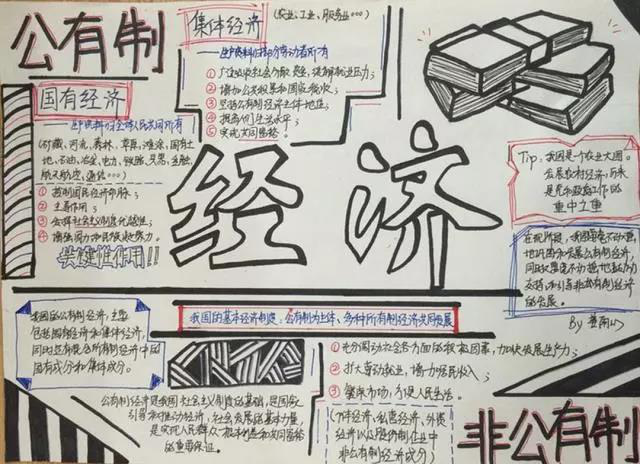 公有制
集体经济
(农业、工业、服务业……)
——生产资料归部分劳动者所有
① 广泛吸收社会分散资金,缓解就业压力;
② 增加公共积累和国家税收;
③ 坚持公有制经济主体地位;
④ 提高人们生活水平;
⑤ 实现共同富裕!
国有经济
——生产资料归全体人民共同所有
(矿藏、河流、森林、草原、滩涂、国有土
地、石油、冶金、电力、铁路、兵器、金融、
航天航空、通信……)
① 控制国民经济命脉;
② 主导作用;
③ 发挥社会主义制度优越性;
④ 增强国力和民族凝聚力。
关键性作用!!
经济
Tip:我国是个农业大国。
发展农村经济,历来
是党和政府工作的
重中之重
在现阶段,我国要毫不动摇
地巩固和发展公有制经济,
同时必须毫不动摇地鼓励、
支持和引导非公有制经济
的发展。
By
我国的基本经济制度:公有制为主体、多种所有制经济共同发展
我国的公有制经济,主要
包括国有经济和集体经济,
同时还有混合所有制经济中的
国有成分和集体成分。
公有制经济是我国社会主义制度的基础,是国家
引导和推动经济、社会发展的基本力量,
是实现人民群众根本利益和共同富裕
的重要保证。
① 充分调动社会各方面的积极因素,加快发展生产力;
② 扩大劳动就业,增加居民收入;
③ 繁荣市场,方便人民生活。
(个体经济、私营经济、外资
经济以及股份制企业中
非公有制经济成分)
非公有制